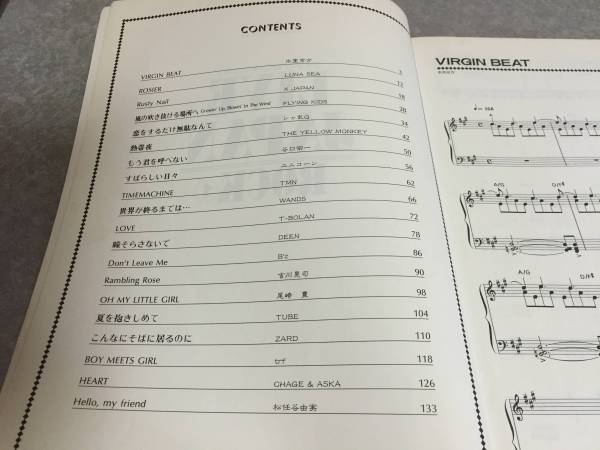 CONTENTS
VIRGIN BEAT 氷室京介 3
ROSIER LUNA SEA 12
Rusty Nail X JAPAN 18
風の吹き抜ける場所へ Growin' Up, Blowin' In The Wind FLYING KIDS 28
恋をするだけ無駄なんて シャ乱Q 34
熱帯夜 THE YELLOW MONKEY 42
もう君を呼べない 谷口宗一 50
すばらしい日々 ユニコーン 56
TIMEMACHINE TMN 62
世界が終るまでは… WANDS 66
LOVE T-BOLAN 72
瞳そらさないで DEEN 78
Don't Leave Me B'z 86
Rambling Rose 吉川晃司 90
OH MY LITTLE GIRL 尾崎 豊 98
夏を抱きしめて TUBE 104
こんなにそばに居るのに ZARD 110
BOY MEETS GIRL trf 118
HEART CHAGE & ASKA 126
Hello, my friend 松任谷由実 133
VIRGIN BEAT
A/G D/F#
A/G D/F#
A/G